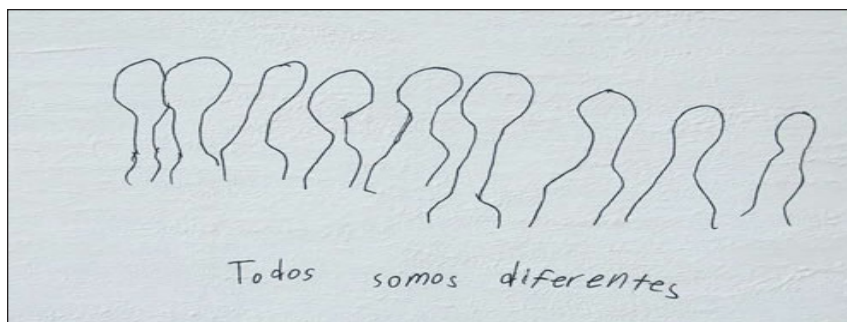 Todos somos diferentes